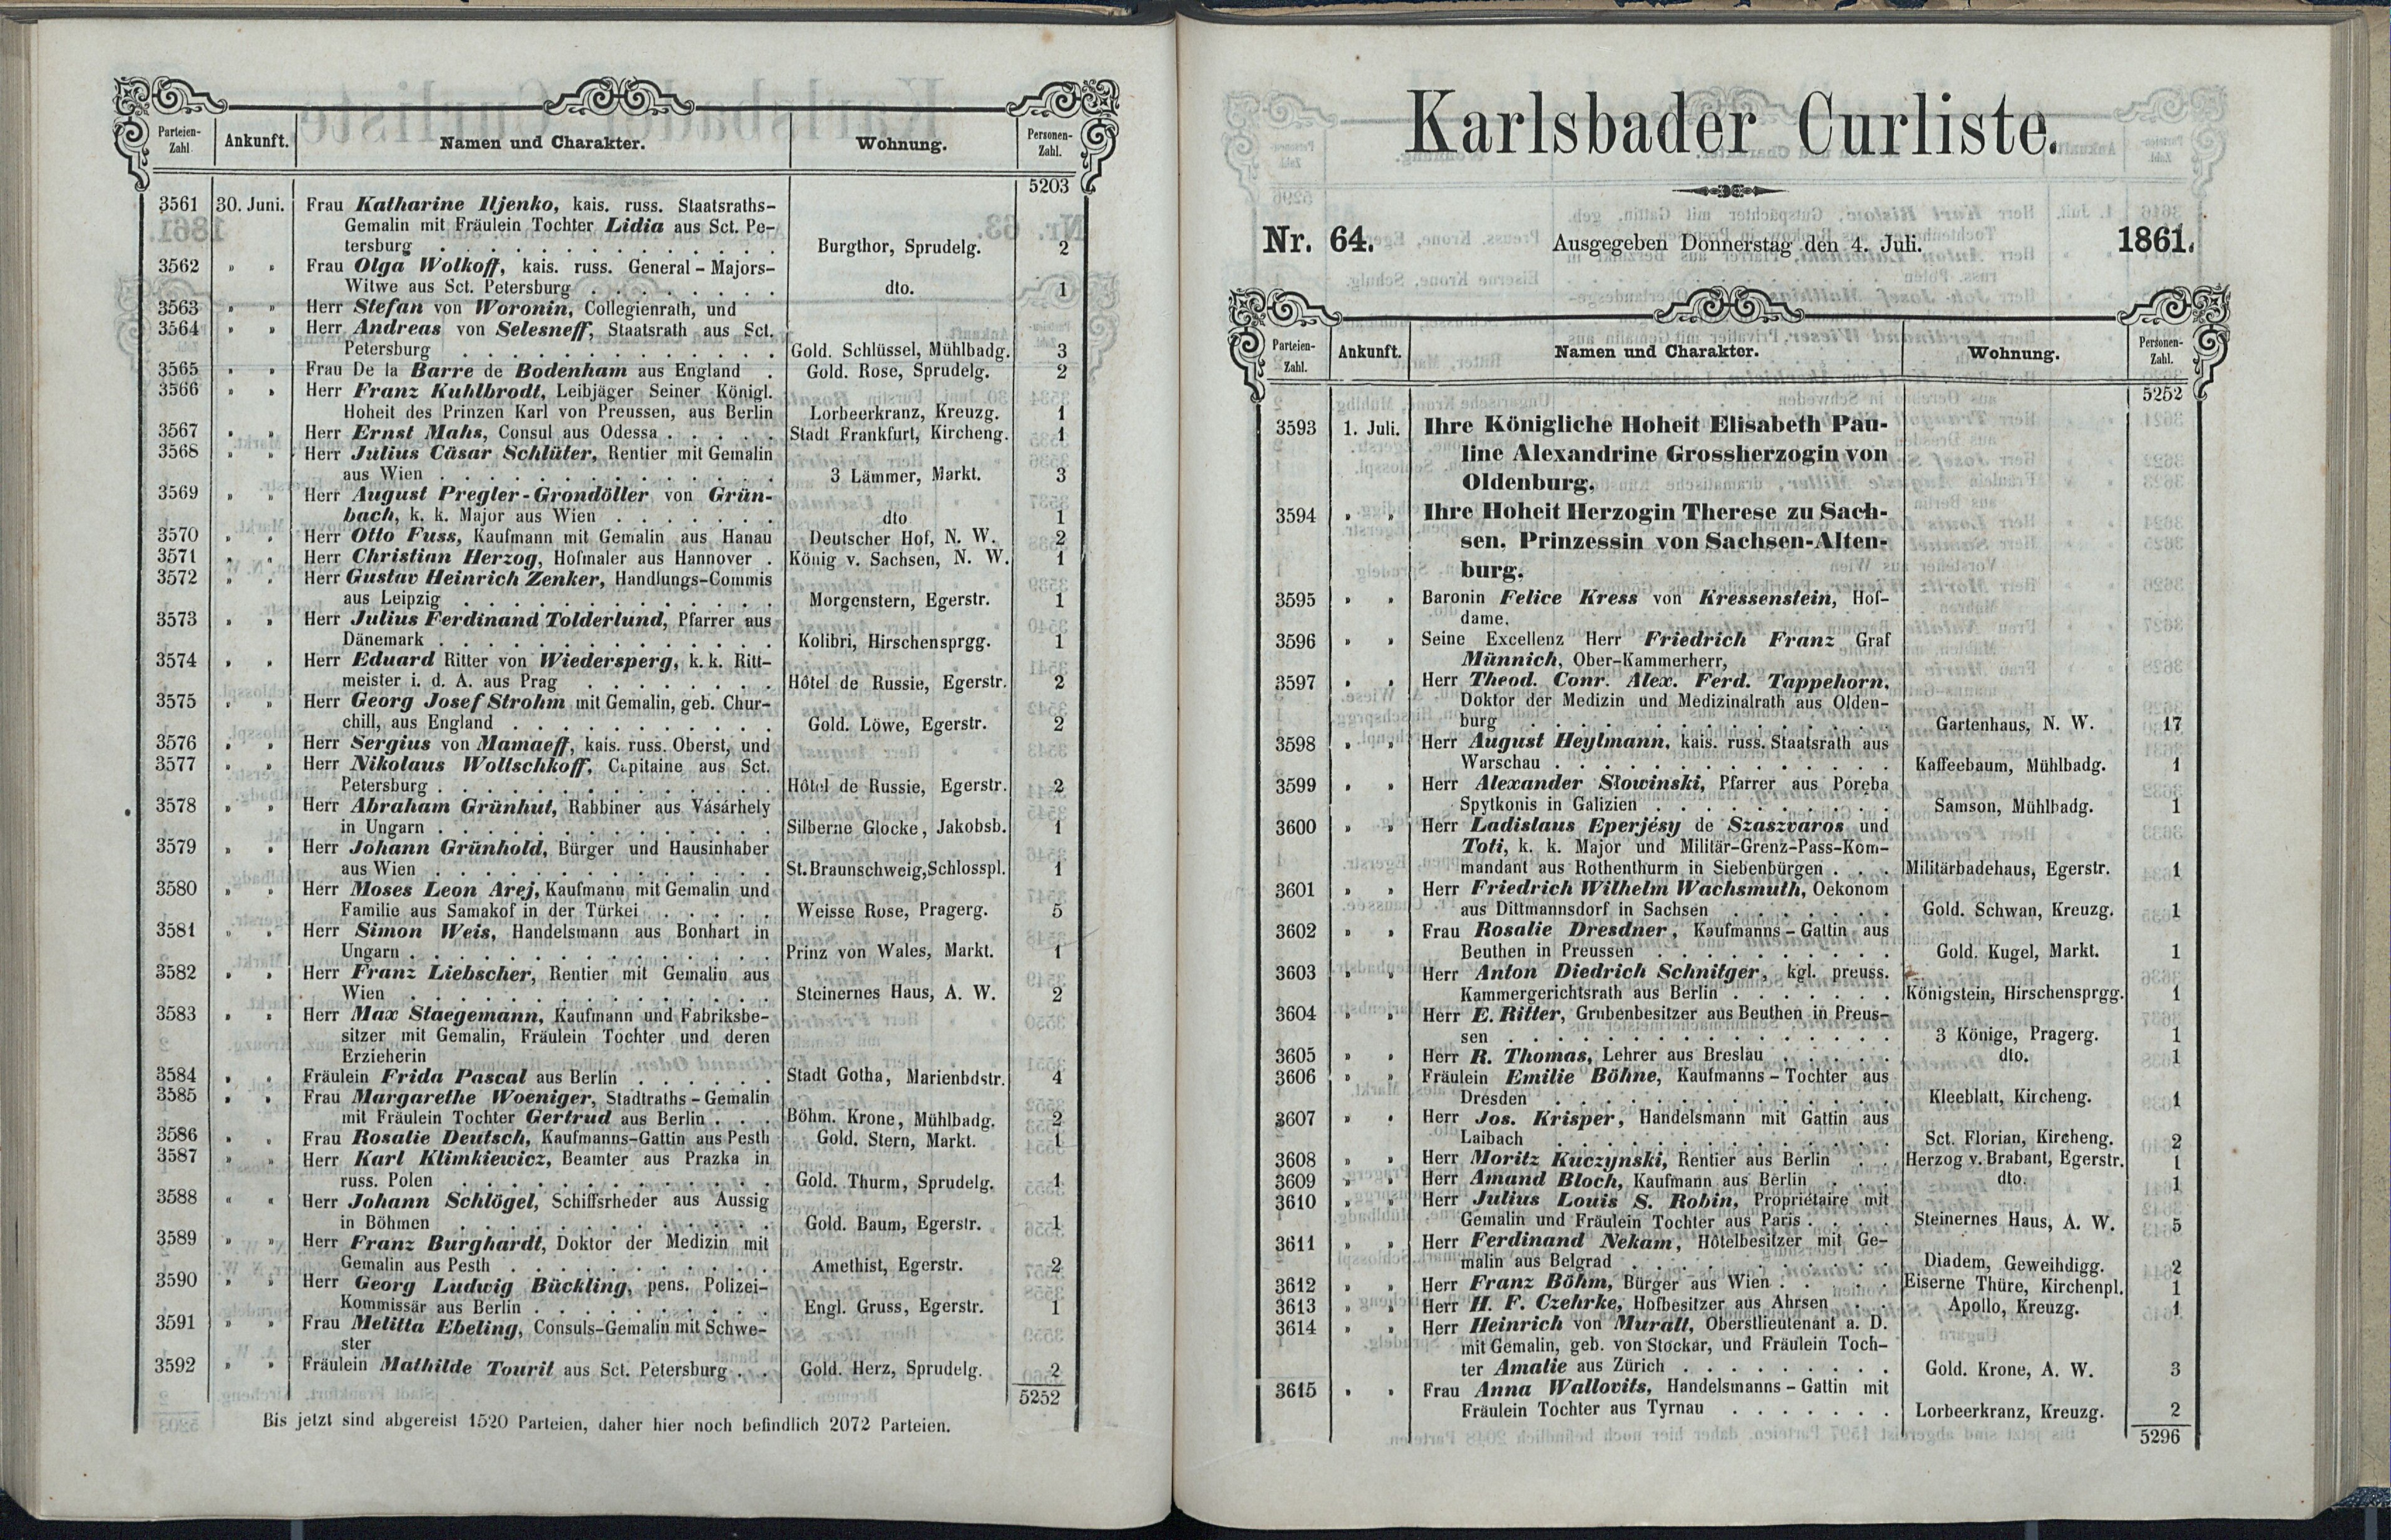 Parteien-Zahl. Ankunft. Namen und Charakter. Wohnung. Personen-Zahl.
5203
3561 30. Juni. Frau Katharine Iljenko, kais. russ. Staatsraths-
Gemalin mit Fräulein Tochter Lidia aus Sct. Pe-
tersburg . . . Burgthor, Sprudelg. 2
3562 " " Frau Olga Wolkoff, kais. russ. General-Majors-
Witwe aus Sct. Petersburg . . . dto. 1
3563 " " Herr Stefan von Woronin, Collegienrath, und
3564 " " Herr Andreas von Selesneff, Staatsrath aus Sct.
Petersburg . . . Gold. Schlüssel, Mühlbadg. 3
3565 " " Frau De la Barre de Bodenham aus England . Gold. Rose, Sprudelg. 2
3566 " " Herr Franz Kuhlbrodt, Leibjäger Seiner Königl.
Hoheit des Prinzen Karl von Preussen, aus Berlin Lorbeerkranz, Kreuzg. 1
3567 " " Herr Ernst Mahs, Consul aus Odessa . . . Stadt Frankfurt, Kircheng. 1
3568 " " Herr Julius Cäsar Schlüter, Rentier mit Gemalin
aus Wien . . . 3 Lämmer, Markt. 3
3569 " " Herr August Pregler-Grondöller von Grün-
bach, k. k. Major aus Wien . . . dto 1
3570 " " Herr Otto Fuss, Kaufmann mit Gemalin aus Hanau Deutscher Hof, N. W. 2
3571 " " Herr Christian Herzog, Hofmaler aus Hannover . König v. Sachsen, N. W. 1
3572 " " Herr Gustav Heinrich Zenker, Handlungs-Commis
aus Leipzig . . . Morgenstern, Egerstr. 1
3573 " " Herr Julius Ferdinand Tolderlund, Pfarrer aus
Dänemark . . . Kolibri, Hirschensprgg. 1
3574 " " Herr Eduard Ritter von Wiedersperg, k. k. Ritt-
meister i. d. A. aus Prag . . . Hôtel de Russie, Egerstr. 2
3575 " " Herr Georg Josef Strohm mit Gemalin, geb. Chur-
chill, aus England . . . Gold. Löwe, Egerstr. 2
3576 " " Herr Sergius von Mamaeff, kais. russ. Oberst, und
3577 " " Herr Nikolaus Woltschkoff, Capitaine aus Sct.
Petersburg . . . Hôtel de Russie, Egerstr. 2
3578 " " Herr Abraham Grünhut, Rabbiner aus Vásárhely
in Ungarn . . . Silberne Glocke, Jakobsb. 1
3579 " " Herr Johann Grünhold, Bürger und Hausinhaber
aus Wien . . . St. Braunschweig, Schlosspl. 1
3580 " " Herr Moses Leon Arej, Kaufmann mit Gemalin und
Familie aus Samakof in der Türkei . . . Weisse Rose, Pragerg. 5
3581 " " Herr Simon Weis, Handelsmann aus Bonhart in
Ungarn . . . Prinz von Wales, Markt. 1
3582 " " Herr Franz Liebscher, Rentier mit Gemalin aus
Wien . . . Steinernes Haus, A. W. 2
3583 " " Herr Max Staegemann, Kaufmann und Fabriksbe-
sitzer mit Gemalin, Fräulein Tochter und deren
Erzieherin
3584 " " Fräulein Frida Pascal aus Berlin . . . Stadt Gotha, Marienbdstr. 4
3585 " " Frau Margarethe Woeniger, Stadtraths-Gemalin
mit Fräulein Tochter Gertrud aus Berlin . . . Böhm. Krone, Mühlbadg. 2
3586 " " Frau Rosalie Deutsch, Kaufmanns-Gattin aus Pesth Gold. Stern, Markt. 1
3587 " " Herr Karl Klimkiewicz, Beamter aus Prazka in
russ. Polen . . . Gold. Thurm, Sprudelg. 1
3588 " " Herr Johann Schlögel, Schiffsrheder aus Aussig
in Böhmen . . . Gold. Baum, Egerstr. 1
3589 " " Herr Franz Burghardt, Doktor der Medizin mit
Gemalin aus Pesth . . . Amethist, Egerstr. 2
3590 " " Herr Georg Ludwig Bückling, pens. Polizei-
Kommissär aus Berlin . . . Engl. Gruss, Egerstr. 1
3591 " " Frau Melitta Ebeling, Consuls-Gemalin mit Schwe-
ster
3592 " " Fräulein Mathilde Tourit aus Sct. Petersburg . . Gold. Herz, Sprudelg. 2
5252
Bis jetzt sind abgereist 1520 Parteien, daher hier noch befindlich 2072 Parteien.
Karlsbader Curliste.
Nr. 64. Ausgegeben Donnerstag den 4. Juli. 1861.
Parteien-Zahl. Ankunft. Namen und Charakter. Wohnung. Personen-Zahl.
5252
3593 1. Juli. Ihre Königliche Hoheit Elisabeth Pau-
line Alexandrine Grossherzogin von
Oldenburg.
3594 " " Ihre Hoheit Herzogin Therese zu Sach-
sen, Prinzessin von Sachsen-Alten-
burg.
3595 " " Baronin Felice Kress von Kressenstein, Hof-
dame.
3596 " " Seine Excellenz Herr Friedrich Franz Graf
Münnich, Ober-Kammerherr,
3597 " " Herr Theod. Conr. Alex. Ferd. Tappehorn,
Doktor der Medizin und Medizinalrath aus Olden-
burg . . . Gartenhaus, N. W. 17
3598 " " Herr August Heylmann, kais. russ. Staatsrath aus
Warschau . . . Kaffeebaum, Mühlbadg. 1
3599 " " Herr Alexander Słowinski, Pfarrer aus Poręba
Spytkonis in Galizien . . . Samson, Mühlbadg. 1
3600 " " Herr Ladislaus Eperjésy de Szaszvaros und
Toti, k. k. Major und Militär-Grenz-Pass-Kom-
mandant aus Rothenthurm in Siebenbürgen . . . Militärbadehaus, Egerstr. 1
3601 " " Herr Friedrich Wilhelm Wachsmuth, Oekonom
aus Dittmannsdorf in Sachsen . . . Gold. Schwan, Kreuzg. 1
3602 " " Frau Rosalie Dresdner, Kaufmanns-Gattin aus
Beuthen in Preussen . . . Gold. Kugel, Markt. 1
3603 " " Herr Anton Diedrich Schnitger, kgl. preuss.
Kammergerichtsrath aus Berlin . . . Königstein, Hirschensprgg. 1
3604 " " Herr E. Ritter, Grubenbesitzer aus Beuthen in Preus-
sen . . . 3 Könige, Pragerg. 1
3605 " " Herr R. Thomas, Lehrer aus Breslau . . . dto. 1
3606 " " Fräulein Emilie Böhne, Kaufmanns-Tochter aus
Dresden . . . Kleeblatt, Kircheng. 1
3607 " " Herr Jos. Krisper, Handelsmann mit Gattin aus
Laibach . . . Sct. Florian, Kircheng. 2
3608 " " Herr Moritz Kuczynski, Rentier aus Berlin . . Herzog v. Brabant, Egerstr. 1
3609 " " Herr Amand Bloch, Kaufmann aus Berlin . . . dto. 1
3610 " " Herr Julius Louis S. Robin, Propriétaire mit
Gemalin und Fräulein Tochter aus Paris . . . Steinernes Haus, A. W. 5
3611 " " Herr Ferdinand Nekam, Hôtelbesitzer mit Ge-
malin aus Belgrad . . . Diadem, Geweihdigg. 2
3612 " " Herr Franz Böhm, Bürger aus Wien . . . Eiserne Thüre, Kirchenpl. 1
3613 " " Herr H. F. Czehrke, Hofbesitzer aus Ahrsen . . Apollo, Kreuzg. 1
3614 " " Herr Heinrich von Muralt, Oberstlieutenant a. D.
mit Gemalin, geb. von Stockar, und Fräulein Toch-
ter Amalie aus Zürich . . . Gold. Krone, A. W. 3
3615 " " Frau Anna Wallovits, Handelsmanns-Gattin mit
Fräulein Tochter aus Tyrnau . . . Lorbeerkranz, Kreuzg. 2
5296